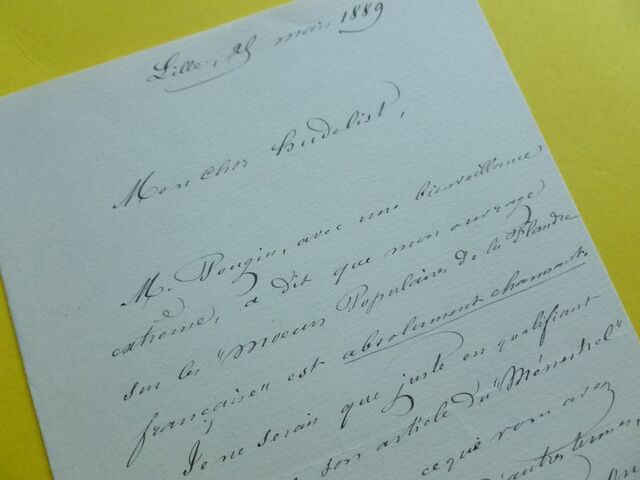 Lille, 25 mars 1889
Mon cher hudelist,
M. Pougin, avec une bienveillance
extrême, a dit que mon ouvrage
sur les "Moeurs Populaires de la Flandre
française" est absolument charmant.
Je ne serai que juste en qualifiant
son article du "Ménestrel"
ce que vous avez
d'autres termes,